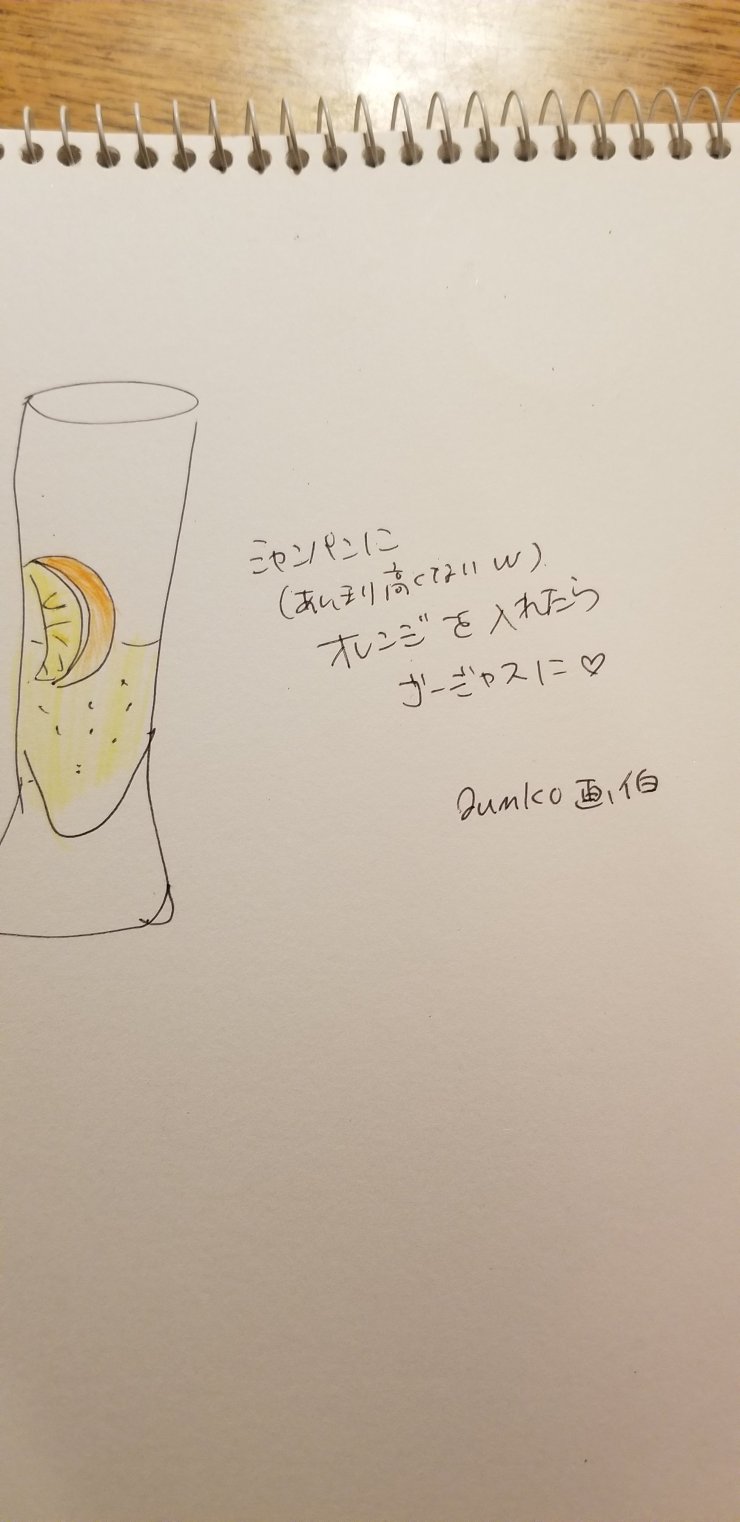 シャンパンに
(あんまり高くないw)
オレンジを入れたら
ガージャスに♡
Junko画伯